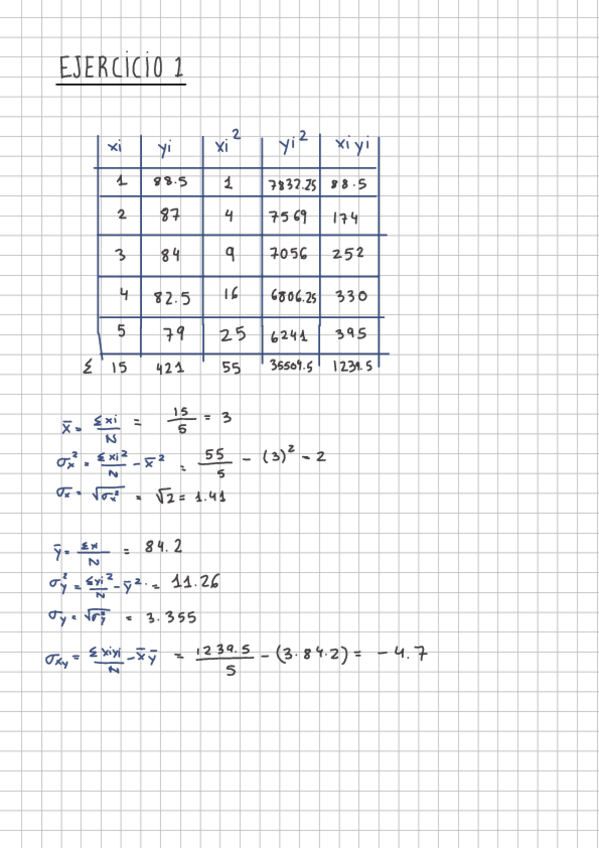 EJERCICIO 1
xi yi xi² yi² xiyi
1 88.5 1 7832.25 88.5
2 87 4 7569 174
3 84 9 7056 252
4 82.5 16 6806.25 330
5 79 25 6241 395
Σ 15 421 55 35504.5 1239.5
x̄ = Σxi/N = 15/5 = 3
σx² = Σxi²/N - x̄² = 55/5 - (3)² = 2
σx = √σx² = √2 = 1.41
ȳ = Σxi/N = 84.2
σy² = Σyi²/N - ȳ² = 11.26
σy = √σy² = 3.355
σxy = Σxiyi/N - x̄ȳ = 1239.5/5 - (3·84.2) = -4.7